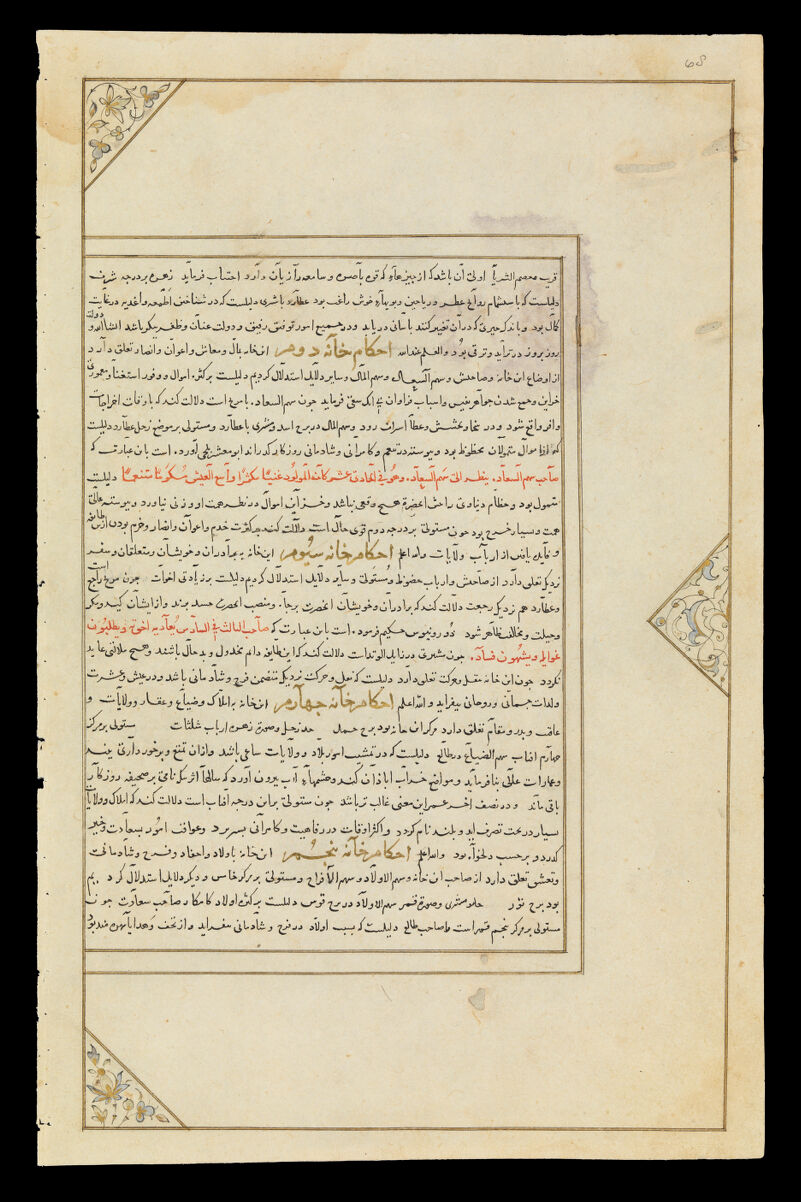 قرب معصم الثریا اولی آن باشد که از چیزهاء که قوه باصره و سامعه را زیان دارد احتناب فرماید زهره بر درجه شرف
دلیلست که باستشمام روایح عطر و ریاحین و بویهاء خوش راغب بود عطارد با مشتری دلیلست که در شناختن اطعمه و اغذیه در غایت
کمال بود و باندک چیزی که در آن تغییر کنند باسانی دریابد و در جمیع امور توفیق رفیق و دولت عنان وظفر
روز بروز در تزاید و ترقی بود والعلم عندالله احکام خانه دوم این خانه بمال و معاش و اعوان و انصار تعلق دارد
از اوضاع این خانه و صاحبش و سهم السعاده و سهم المال و سایر دلایل استدلال کردیم دلیلست بر کثرت اموال و وفور استغنا و معموری
خزاین و جمع شدن جواهر نفیس و اسباب فراوان بی انک سعی فرماید چون سهم السعاده دلالت کند که باوقات اخراجات
وافر واقع شود و در سخا و بخشش و عطا اسراف رود و سهم المال در برج اسد و مشتری با عطارد و مستولی بر موضع زحل عطارد دلیلست
که از اموال متمولان محظوظ بود و پیوسته در تنعم و کامرانی و شادمانی روزکار کذراند ابو معشر بلخی آورده است باین عبارت که
صاحب سهم السعاده ینظر الی سهم السعاده وهو فی الحادی عشر کان المولود غنیا مکثرا واسع العیش
متمول بود و حطام دنیاوی
همت و بسیار خرج بود چون مستولی بر درجه دوم قوی حال است دلالت کند بر کثرت خدم و اعوان و انصار و خرم بودن
و فایده یافتن از ارباب ولایات والله اعلم احکام خانه سیوم این خانه به برادران و خویشان و متعلقان و سفر
نزدیک تعلق دارد از صاحبش و ارباب حظوظ و مستولی و سایر دلایل استدلال کردیم دلیلست بر زیادتی اخوات چون
و عطارد هم نزدیک رجعت دلالت کند که برادران و خویشان آنحضرت بر جاه و منصب آنحضرت حسد برند و از ایشان کید و مکر
و حیلت و مخالفت ظاهر شود دوروثیوس حکیم فرموده است باین عبارت که صاحب الثالث فی السادس یعادیه اخوته ویطلبون
غوایله ویشتهون فساده چون مشتری در زایل الوتدست دلالت کند که این طایفه دایم مخذول و بدحال باشند و هیچ ملالتی عاید
نکردد چون این خانه بنقل و حرکت تعلق دارد دلیلست که نقل و حرکت نزدیک متضمن فرح و شادمانی باشد و در عیش و عشرت
ولذات جسمانی و روحانی بیفزاید والله اعلم احکام خانه جهارم این خانه به املاک و ضیاع و عقار و ولایات و
عاقبت و پدر و مقام تعلق دارد مرکز این خانه بود برج حمل حد زحل و صوره زهره ارباب مثلثات مستولی بر مرکز
جهارم آفتاب سهم الضیاع در طالع دلیلست که در تمشیت امور بلاد و ولایات ساعی باشد و از آن تمتع و برخورداری بیند
و عمارات عالی بنا فرماید و مواضع خراب ابادان کند و چشمهاء آب بیرون آورد که سالها اثر نیک نامی بر صحیفه روزکار
باقی ماند و در نصف اخر عمر این معنی غالب تر باشد چون مستولی برین درجه آفتاب است دلالت کند که املاک و ولایات
بسیار در تحت تصرف اید و بلند نام کردد و اکثر اوقات در رفاهیت و کامرانی بسر برد و عواقب امور بسعادت و خیر
کذرد و بر حسب دلخواه بود والله اعلم احکام خانه پنجم این خانه باولاد و احفاد و فرح و شادمانی
و تعشق تعلق دارد از صاحب این خانه و سهم الاولاد و سهم الافراح و مستولی بر مرکز خامس و دیکر دلایل استدلال کردیم
بود برج ثور حد مشتری و صوره قمر سهم الاولاد در برج قوس دلیلست بر کثرت اولاد کامکار صاحب سعادت چون
مستولی بر مرکز پنجم قمر است و صاحب طالع دلیلست که بسبب اولاد در فرح و شادمانی بیفزاید و از تحف و هدایا بهره مند بود